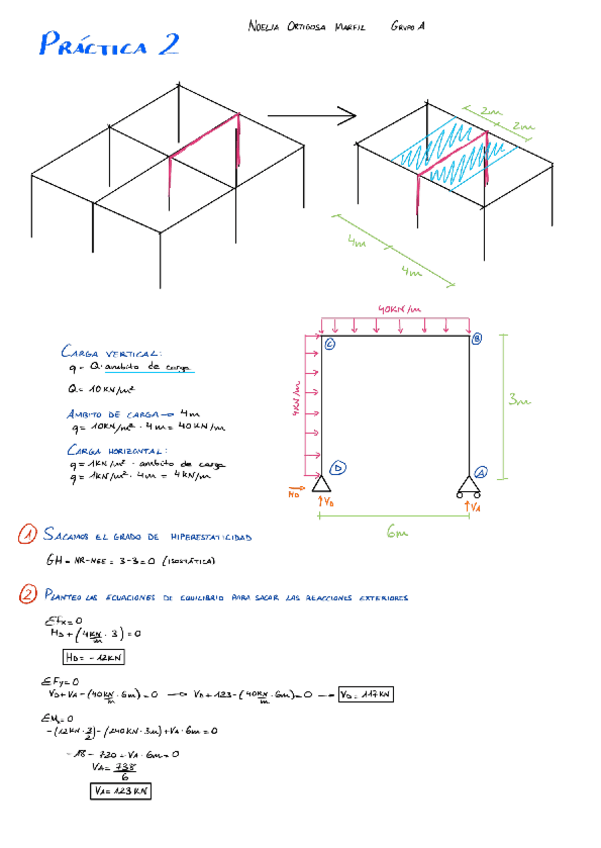 NOELIA ORTIGOSA MARFIL GRUPO A
PRÁCTICA 2
2m
2m
4m
4m
40KN/m
C
B
4KN/m
3m
D
A
HD
VD
VA
6m
CARGA VERTICAL:
q = Q · ambito de carga
Q = 10 KN/m²
AMBITO DE CARGA → 4m
q = 10KN/m² · 4m = 40 KN/m
CARGA HORIZONTAL:
q = 1KN/m² · ambito de carga
q = 1KN/m² · 4m = 4KN/m
1 SACAMOS EL GRADO DE HIPERESTATICIDAD
GH = NR-NEE = 3-3=0 (ISOSTÁTICA)
2 PLANTEO LAS ECUACIONES DE EQUILIBRIO PARA SACAR LAS REACCIONES EXTERIORES
ΣFx=0
HD + (4KN/m · 3) = 0
HD = -12KN
ΣFy=0
VD+VA-(40KN/m · 6m)=0 → VD+123-(40KN/m · 6m)=0 → VD = 117KN
ΣM =0
-(12KN · 3/2)-(240KN · 3m)+VA · 6m=0
-18 - 720 + VA · 6m=0
VA = 738/6
VA = 123KN